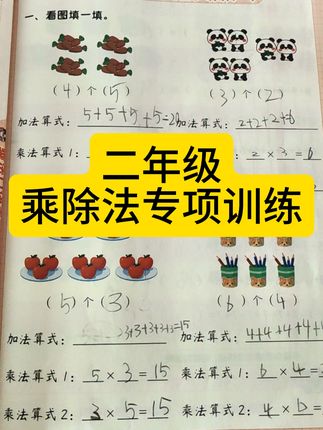 一、看图填一填。
(4)个(5) (3)个(2)
加法算式: 5+5+5+5=20 加法算式: 2+2+2=6
乘法算式1: 2×3=6
二年级
乘除法专项训练
(5)个(3) (6)个(4)
加法算式: 3+3+3+3+3=15 加法算式: 4+4+4+4+
乘法算式1: 5×3=15 乘法算式1: 6×4=
乘法算式2: 3×5=15 乘法算式2: 4×6=